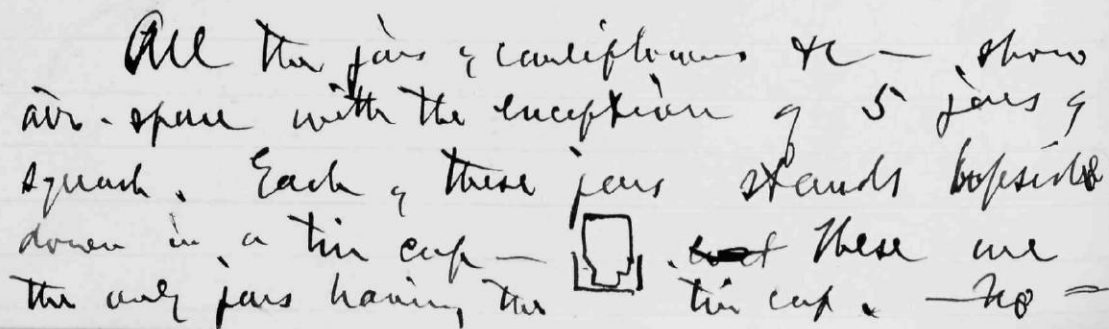 All the jars of cauliflowers &c — show
air-space with the exception of 5 jars of
squash. Each of these jars stands topside
down in a tin cup — . These are
the only jars having the tin cup. — No =